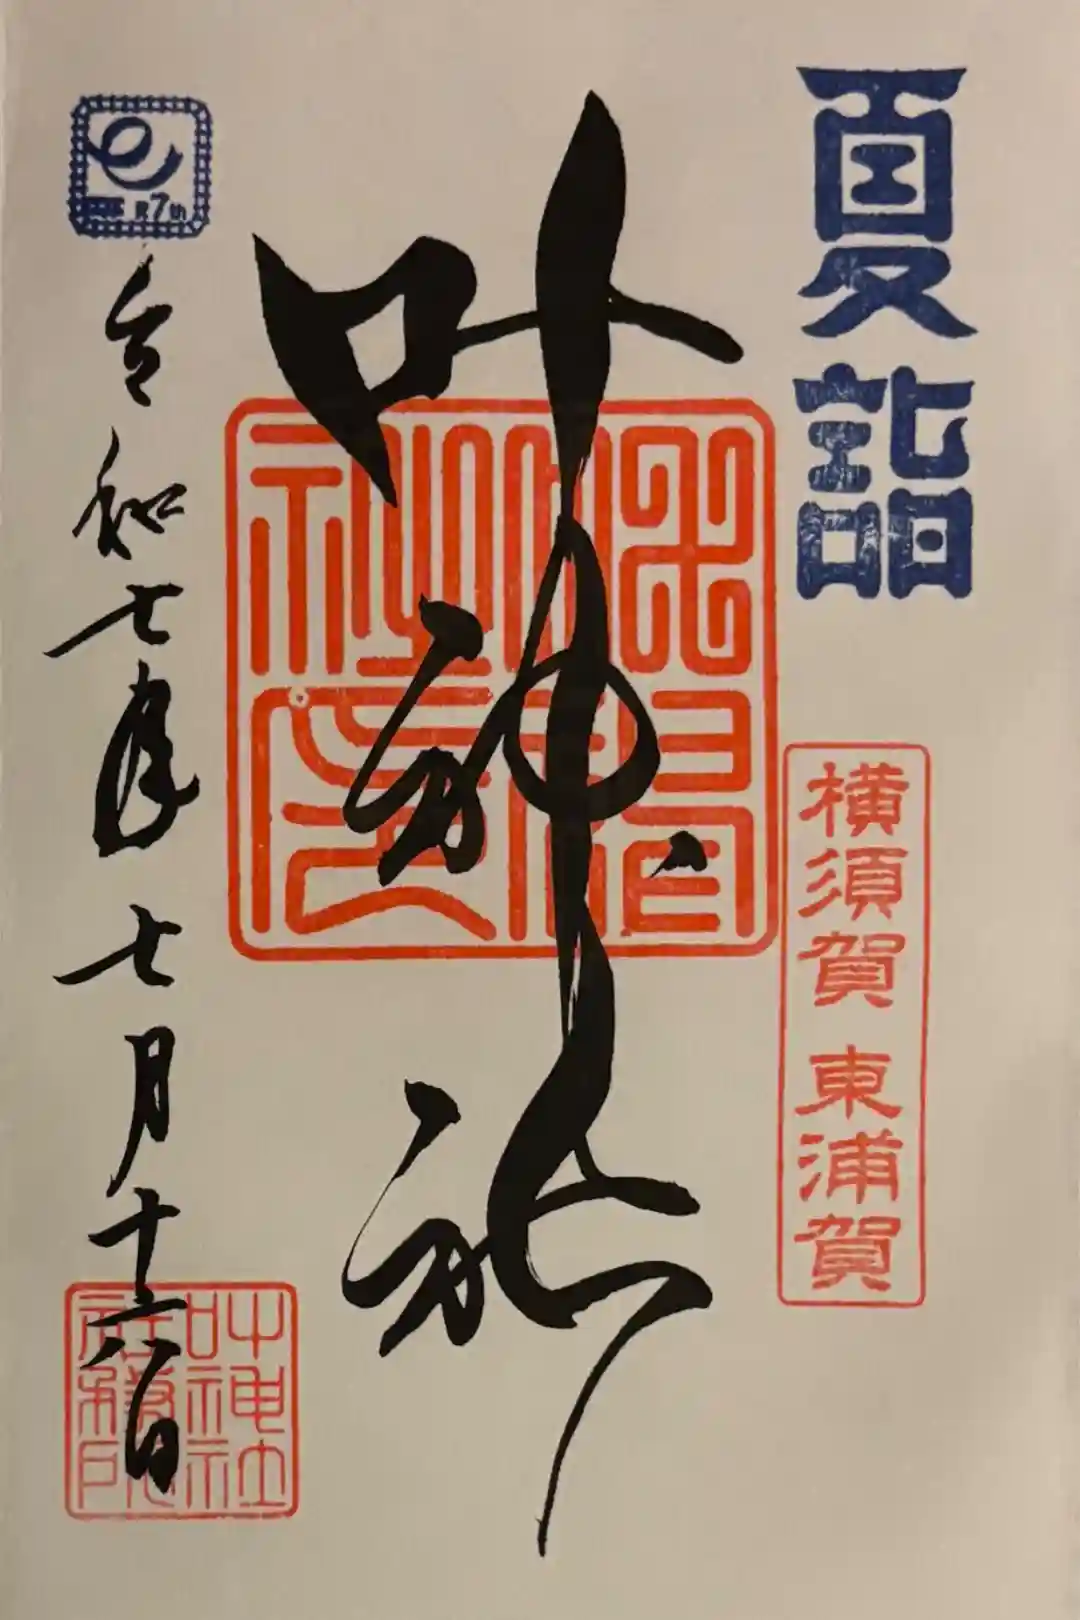 夏詣
横須賀 東浦賀
叶神社
7th
令和七年七月十六日
叶神社
社務所